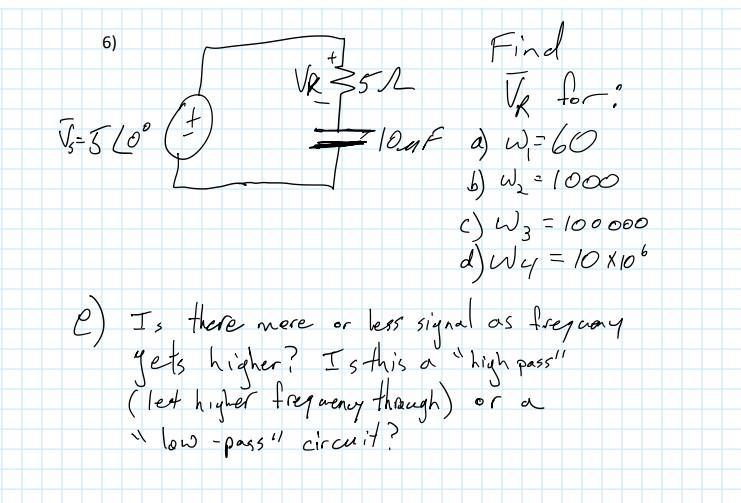 6)
Find
V̄R for:
+
VR
-
5Ω
V̄s=5∠0°
+
-
10μF
a) ω1=60
b) ω2=1000
c) ω3=100000
d) ω4=10x10⁶
e) Is there more or less signal as frequency
gets higher? Is this a "high pass"
(let higher frequency through) or a
"low-pass" circuit?